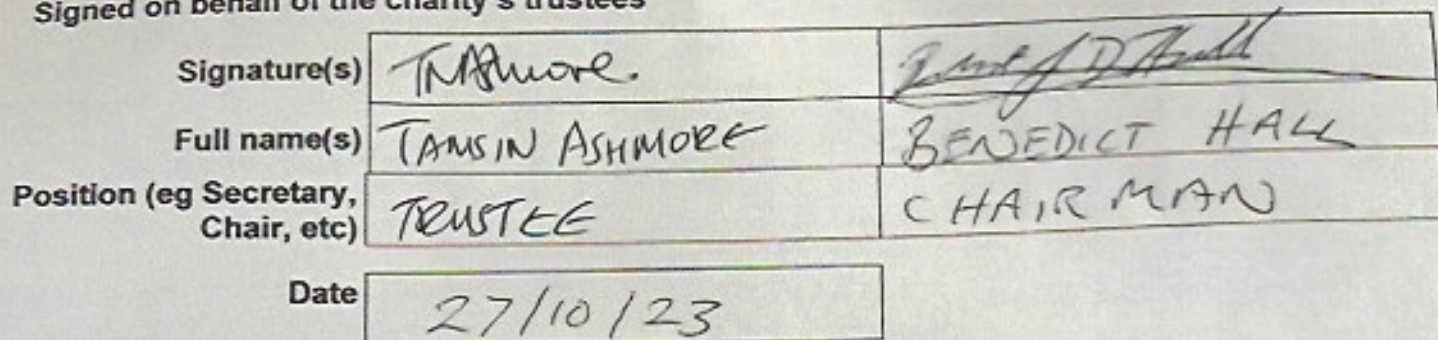 Signed on behalf of the charity's trustees
Signature(s) TNAshmore.
Full name(s) TAMSIN ASHMORE BENEDICT HALL
Position (eg Secretary, Chair, etc) TRUSTEE CHAIRMAN
Date 27/10/23